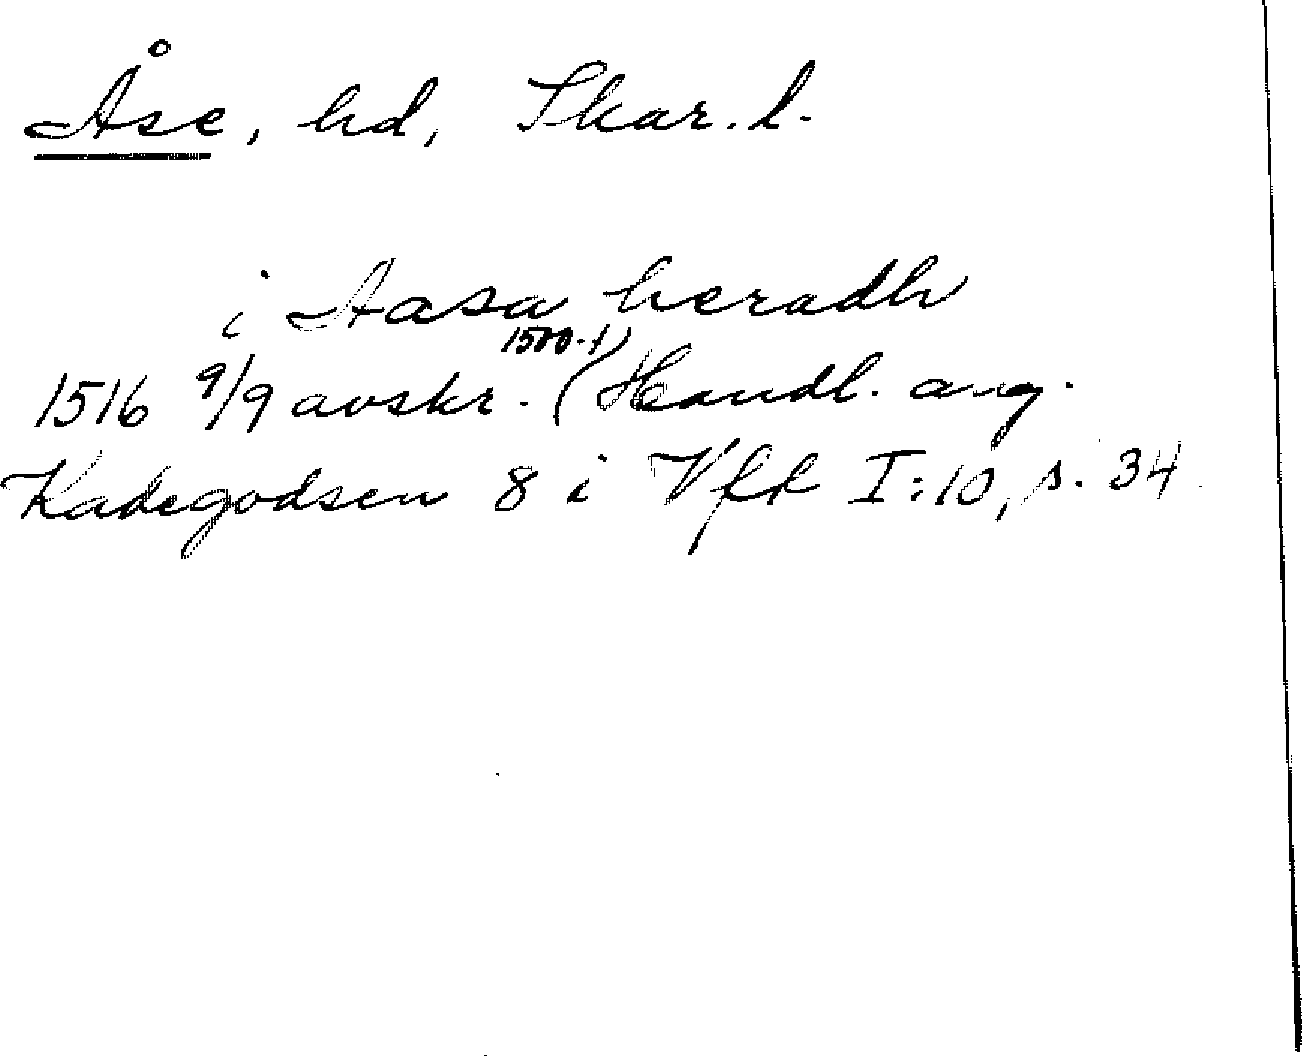 Åse, hd, Skar. l.
i Aasa heradh
1500-t)
1516 9/9 avskr. (Handl. ang.
Kakegodsen 8 i Vfft I:10, s. 34